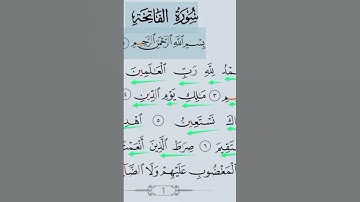 سُورَةُ الْفَاتِحَةِ
بِسْمِ اللَّهِ الرَّحْمَٰنِ الرَّحِيمِ ١
مْدُ لِلَّهِ رَبِّ الْعَالَمِينَ
يمِ ٣ مَالِكِ يَوْمِ الدِّينِ ٤
كَ نَسْتَعِينُ ٥ اهْدِ
سْتَقِيمَ ٦ صِرَاطَ الَّذِينَ أَنْعَمْتَ
الْمَغْضُوبِ عَلَيْهِمْ وَلَا الضَّا
1